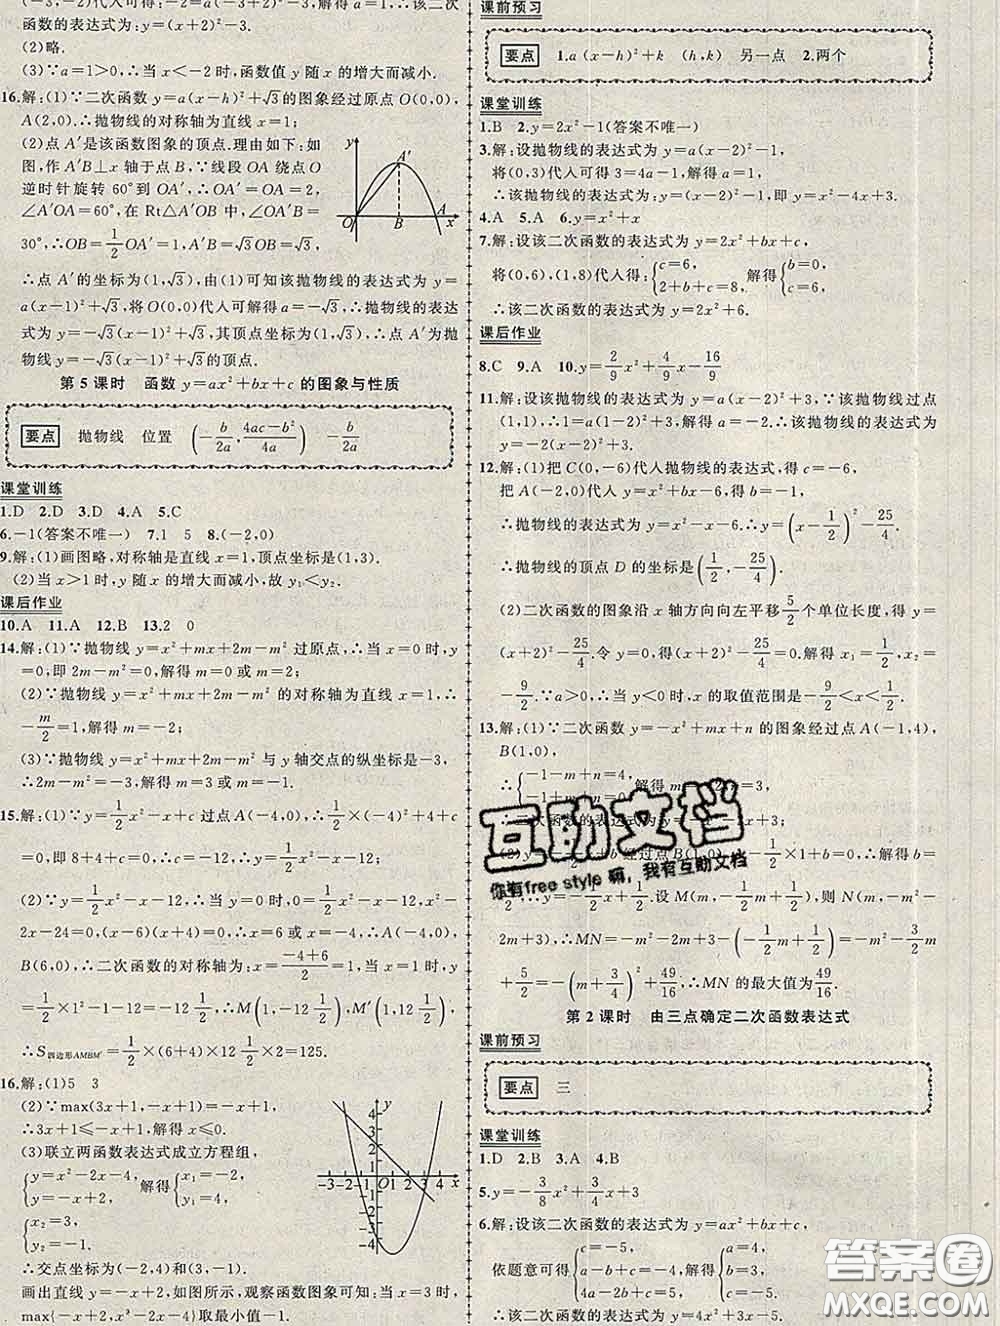 (-3,-2)代入可得:-2=a(-3+2)²-3,解得a=1,∴该二次
函数的表达式为:y=(x+2)²-3.
(2)略.
(3)∵a=1>0,∴当 x<-2时,函数值 y 随 x 的增大而减小.
16.解:(1)∵二次函数 y=a(x-h)²+√3的图象经过原点O(0,0),
A(2,0).∴抛物线的对称轴为直线 x=1;
(2)点 A′是该函数图象的顶点.理由如下:如
图,作A′B⊥x 轴于点 B,∵线段 OA 绕点O
逆时针旋转 60°到 OA′,∴OA′=OA=2,
∠A′OA=60°,在 Rt△A′OB 中,∠OA′B=
30°,∴OB=1/2OA′=1,A′B=√3OB=√3,
∴点 A′的坐标为(1,√3),由(1)可知该抛物线的表达式为y=
a(x-1)²+√3,将O(0,0)代入可解得a=-√3,∴抛物线的表达
式为y=-√3(x-1)²+√3,其顶点坐标为(1,√3).∴点 A′为抛
物线y=-√3(x-1)²+√3的顶点.
y
A′
O
B
A
x
第 5 课时 函数 y=ax²+bx+c 的图象与性质
要点 抛物线 位置 (-b/2a,(4ac-b²)/4a) -b/2a
课堂训练
1.D 2.D 3.D 4.A 5.C
6.-1(答案不唯一) 7.1 5 8.(-2,0)
9.解:(1)画图略,对称轴是直线 x=1,顶点坐标是(1,3).
(2)当 x>1时,y 随 x 的增大而减小,故 y₁<y₂.
课后作业
10.A 11.A 12.B 13.2 0
14.解:(1)∵抛物线 y=x²+mx+2m-m² 过原点,∴当 x=0时,y
=0,即 2m-m²=0,解得 m=0 或 m=2;
(2)∵抛物线 y=x²+mx+2m-m² 的对称轴为直线 x=1,∴
-m/2=1,解得 m=-2;
(3)∵抛物线 y=x²+mx+2m-m² 与 y 轴交点的纵坐标是-3,
∴2m-m²=-3,解得 m=3 或 m=-1.
15.解:(1)∵y=1/2x²-x+c 过点 A(-4,0),∴1/2×(-4)²+4+c
=0,即 8+4+c=0,∴c=-12,∴y=1/2x²-x-12;
(2)∵y=1/2x²-x-12,∴当 y=0时,0=1/2x²-x-12,x²-
2x-24=0,(x-6)(x+4)=0,∴x=6 或 x=-4,∴A(-4,0),
B(6,0),∴二次函数的对称轴为:x=(-4+6)/2=1,当 x=1 时,y=
1/2×1²-1-12=-12 1/2,∴M(1,-12 1/2),M′(1,12 1/2),
∴S四边形AMBM′=1/2×(6+4)×12 1/2×2=125.
16.解:(1)5 3
(2)∵max(3x+1,-x+1)=-x+1,
∴3x+1≤-x+1,解得 x≤0.
(3)联立两函数表达式成立方程组,
{y=x²-2x-4, y=-x+2, 解得{x₁=-2, y₁=4,
{x₂=3, y₂=-1.
∴交点坐标为(-2,4)和(3,-1).
画出直线 y=-x+2,如图所示,观察函数图象可知:当 x=3 时,
max{-x+2,x²-2x-4}取最小值-1.
4
3
2
1
-3-2-1 O 1 2 3 4 x
-2
-3
-4
课前预习
要点 1.a(x-h)²+k (h,k) 另一点 2.两个
课堂训练
1.B 2.y=2x²-1(答案不唯一)
3.解:设抛物线的表达式为 y=a(x-2)²-1,
将(0,3)代入可得 3=4a-1,解得 a=1,
∴该抛物线的表达式为:y=(x-2)²-1,即 y=x²-4x+3.
4.A 5.A 6.y=x²+x
7.解:设该二次函数的表达式为 y=2x²+bx+c,
将(0,6),(1,8)代入得:{c=6, 2+b+c=8, 解得{b=0, c=6.
∴该二次函数的表达式为:y=2x²+6.
课后作业
8.C 9.A 10.y=2/9x²+4/9x-16/9
11.解:设该抛物线的表达式为 y=a(x-2)²+2,∵该抛物线过点
(1,1),∴1=a(1-2)²+2,解得 a=-1,∴该抛物线的表达式为
y=-2(x-2)²+2.
12.解:(1)把 C(0,-6)代入抛物线的表达式,得 c=-6,
把 A(-2,0)代入 y=x²+bx-6,得 b=-1,
∴抛物线的表达式为 y=x²-x-6.∴y=(x-1/2)²-25/4.
∴抛物线的顶点 D 的坐标是(1/2,-25/4);
(2)二次函数的图象沿 x 轴方向向左平移5/2个单位长度,得 y=
(x+2)²-25/4.令 y=0,得(x+2)²-25/4=0,解得 x₁=1/2,x₂=
-9/2.∵a>0,∴当 y<0 时,x 的取值范围是-9/2<x<1/2.
13.解:(1)∵二次函数 y=-x²+mx+n 的图象经过点 A(-1,4),
B(1,0),
∴{-1-m+n=4, -1+m+n=0, 解得
∴二次函数的表达式为 y=
(2) 经过点B(1,0), -1/2×1+b=0,∴解得 b=
1/2,∴y=-1/2x+1/2.设 M(m,-1/2m+1/2),则 N(m,-m²-
2m+3),∴MN=-m²-2m+3-(-1/2m+1/2)=-m²-3/2m
+5/2=-(m+3/4)²+49/16,∴MN 的最大值为49/16.
第 2 课时 由三点确定二次函数表达式
课前预习
要点 三
课堂训练
1.D 2.B 3.A 4.B
5.y=-3/8x²+3/4x+3
6.解:设该二次函数的表达式为 y=ax²+bx+c,
依题意可得{c=-5, a+b+c=2, 4a-2b+c=5, 解得{a=4, b=3, c=-5.
∴该二次函数的表达式为:y=4x²+3x-5.
互助文档
你有free style 嘛,我有互助文档
答案圈
MXQE.COM